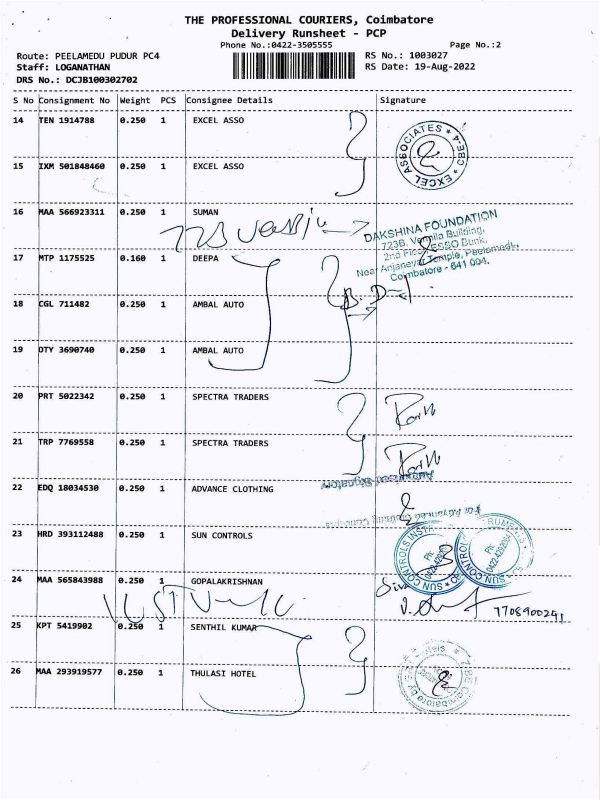 THE PROFESSIONAL COURIERS, Coimbatore
Delivery Runsheet - PCP
Phone No.:0422-3505555 Page No.:2
Route: PEELAMEDU PUDUR PC4 RS No.: 1003027
Staff: LOGANATHAN RS Date: 19-Aug-2022
DRS No.: DCJB100302702
S No Consignment No Weight PCS Consignee Details Signature
14 TEN 1914788 0.250 1 EXCEL ASSO
EXCEL ASSOCIATES
15 IXM 501848460 0.250 1 EXCEL ASSO
16 MAA 566923311 0.250 1 SUMAN
DAKSHINA FOUNDATION
723B, Vermila Building,
2nd Floor, ESSO Bunk,
Near Anjaneyar Temple, Peelamedu,
Coimbatore - 641 004.
17 MTP 1175525 0.160 1 DEEPA
18 CGL 711482 0.250 1 AMBAL AUTO
19 OTY 3690740 0.250 1 AMBAL AUTO
20 PRT 5022342 0.250 1 SPECTRA TRADERS
21 TRP 7769558 0.250 1 SPECTRA TRADERS
Authorised Signatory
22 EDQ 18034530 0.250 1 ADVANCE CLOTHING
23 HRD 393112488 0.250 1 SUN CONTROLS
SUN CONTROLS
24 MAA 565843988 0.250 1 GOPALAKRISHNAN
7708900291
25 KPT 5419902 0.250 1 SENTHIL KUMAR
26 MAA 293919577 0.250 1 THULASI HOTEL